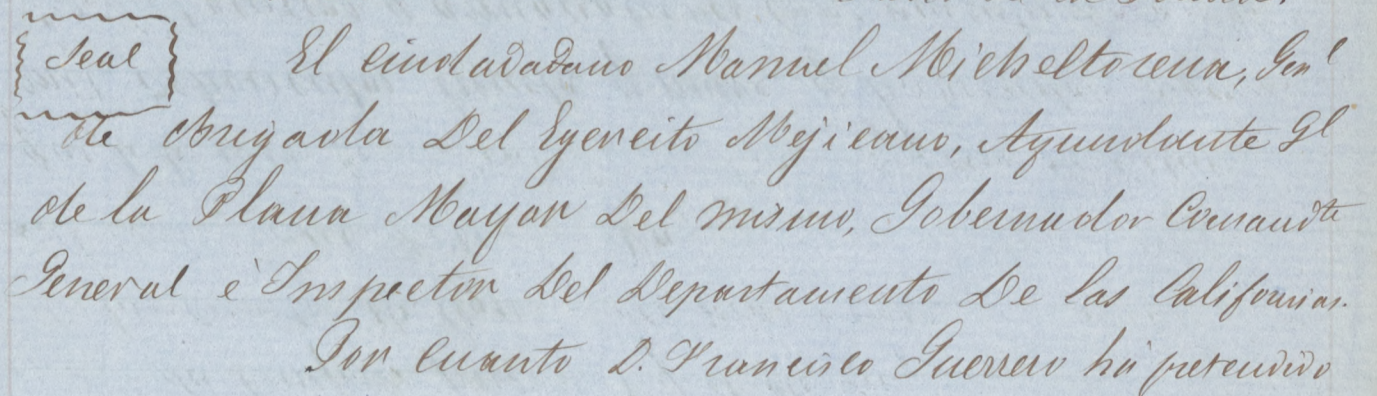 Seal
El ciudadadano Manuel Micheltorena, Genl
de Brigada Del Egercito Mejicano, Ayundante Gl
de la Plana Mayor Del mismo, Gobernador Comandte
General è Inspector Del Departamento De las Californias.
Por cuanto D. Francisco Guerrero há pretendido